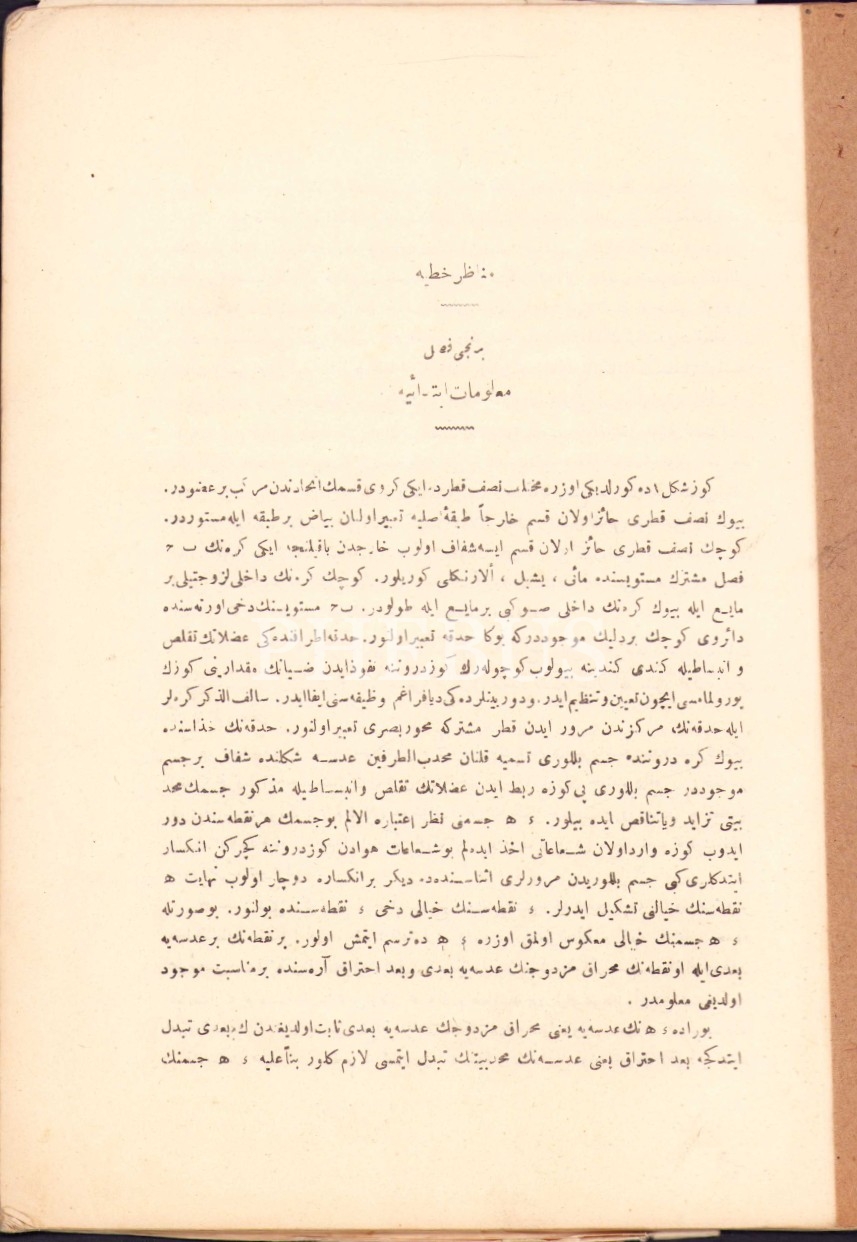 مناظر خطيه
برنجى فصل
معلومات ابتدائيه
كوز شكل ١ ده كورلديكى اوزره مختلف نصف قطرده ايكى كروى قسمك اتحادندن مركب بر عضودر.
بيوك نصف قطرى حائز اولان قسم خارجاً طبقهٔ صلبه تعبير اولنان بياض بر طبقه ايله مستوردر.
كوچك نصف قطرى حائز اولان قسم ايسه شفاف اولوب خارجدن باقيلنجه ايكى كره نك ب ح
فصل مشترك مستويسنده مائى ، يشيل ، ألا رنكلى كوريلور. كوچك كره نك داخلى لزوجتلى بر
مايع ايله بيوك كره نك داخلى صو كبى بر مايع ايله طولودر. ب ح مستويسنك دخى اورته سنده
دائروى كوچك بر دليك موجوددر كه بوكا حدقه تعبير اولنور. حدقه اطرافنده كى عضلاتك تقلص
و انبساطيله كندى كندينه بيولوب كوچوله رك كوز دروننه نفوذ ايدن ضيانك مقدارينى كوزك
يورولمامسى ايچون تعيين و تنظيم ايدر. و دوربينلرده كى ديافراغم وظيفه سنى ايفا ايدر. سالف الذكر كره لر
ايله حدقه نك مركزندن مرور ايدن قطر مشتركه محور بصرى تعبير اولنور. حدقه نك حذاسنده
بيوك كره دروننده جسم بللورى تسميه قلنان محدب الطرفين عدسه شكلنده شفاف بر جسم
موجوددر جسم بللورى يى كوزه ربط ايدن عضلاتك تقلص وانبساطيله مذكور جسمك محد
بيتى تزايد وياتناقص ايده بيلور. ء ه جسمنى نظر اعتباره الالم بو جسمك هر نقطه سندن دور
ايدوب كوزه وارد اولان شعاعاتى اخذ ايده لم بوشعاعات هوادن كوز دروننه كچركن انكسار
ايتدكلرى كبى جسم بللوريدن مرورلرى اثناسنده ده ديكر بر انكساره دوچار اولوب نهايت ه
نقطه سنك خيالنى تشكيل ايدرلر. ء نقطه سنك خيالى دخى ء نقطه سنده بولنور. بوصورتله
ء ه جسمنك خيالى معكوس اولمق اوزره ء ه ده ترسم ايتمش اولور. بر نقطه نك بر عدسه يه
بعدى ايله او نقطه نك محراق مزدوجنك عدسه يه بعدى وبعد احتراق آره سنده بر مناسبت موجود
اولديغى معلومدر .
بوراده ء ه نك عدسه يه يعنى محراق مزدوجك عدسه يه بعدى ثابت اولديغندن ك بعدى تبدل
ايتدكجه بعد احتراق يعنى عدسه نك محدبيتنك تبدل ايتمسى لازم كلور بناءً عليه ء ه جسمنك